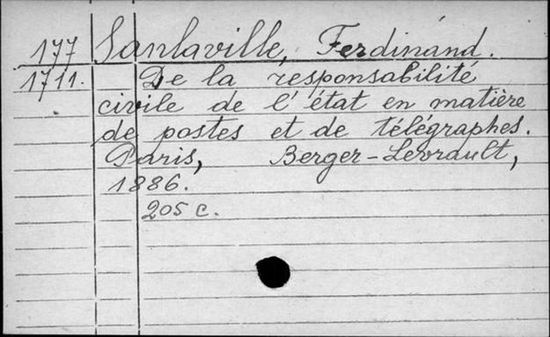 177 Sanlaville, Ferdinánd.
1711. De la responsabilité
civile de l'état en matière
de postes et de télégraphes.
Paris, Berger-Levrault,
1886.
205 c.